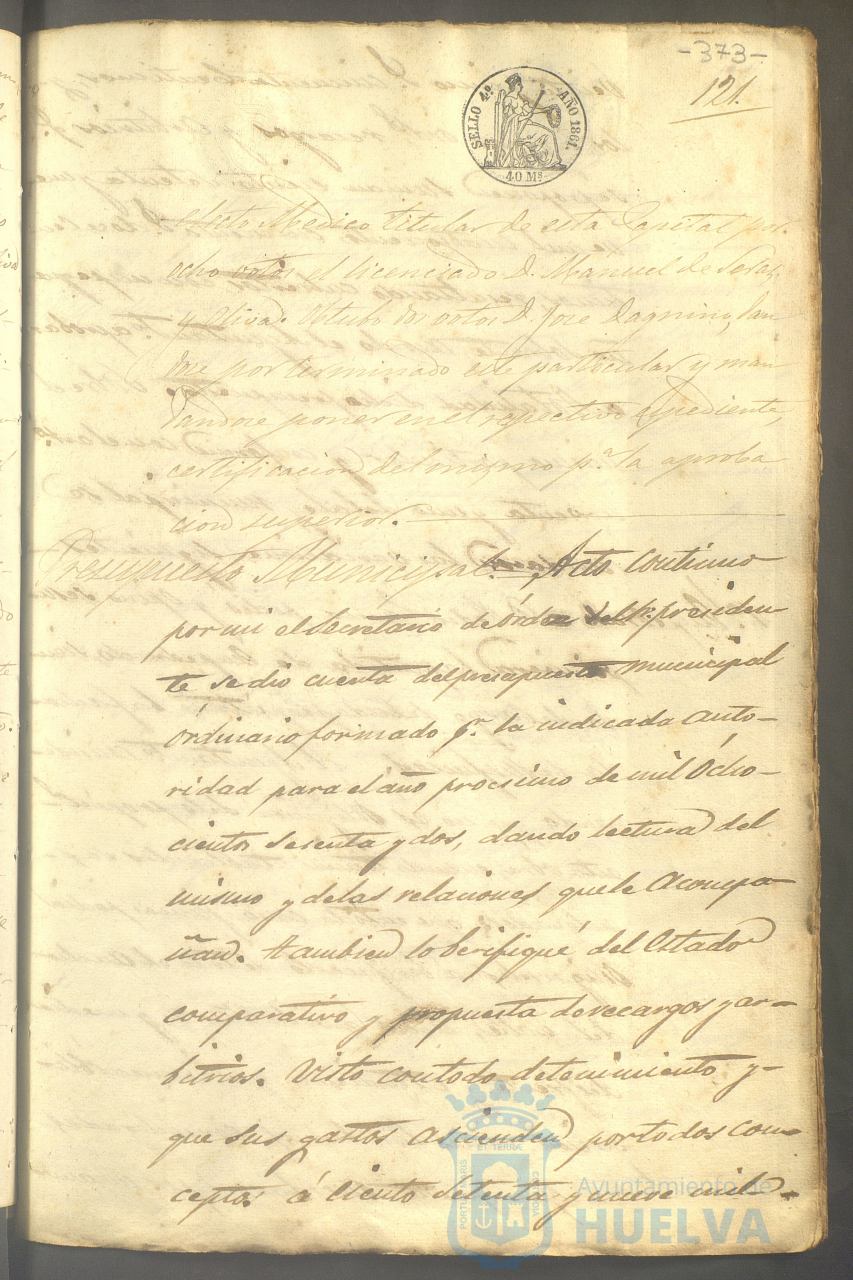 -373-
121.
SELLO 4º AÑO 1861.
40 Ms
electo Medico titular de esta Capital por
ocho votos el licenciado D. Manuel de
y Oliva. Obtubo dos votos D. Jose Dagnino, dan
dose por terminado este particular y man
dandose poner en el respectivo expediente,
certificacion del mismo pª la aproba
cion superior.
Presupuesto Municipal. = Acto continuo
por mi el Secretario de órden del Sr. presiden
te se dio cuenta del presupuesto municipal
órdinario formado pr. la indicada auto-
ridad para el año procsimo de mil Ócho-
cientos sesenta y dos, dando lectura del
mismo y de las relaciones que le acompa-
ñan. tambien lo berifiqué del Estado
comparativo y propuesta de recargos y ar-
bitrios. Visto con todo detenimiento y-
que sus gastos ascienden por todos con-
ceptos á Ciento setenta y nueve mil
Ayuntamiento de
HUELVA